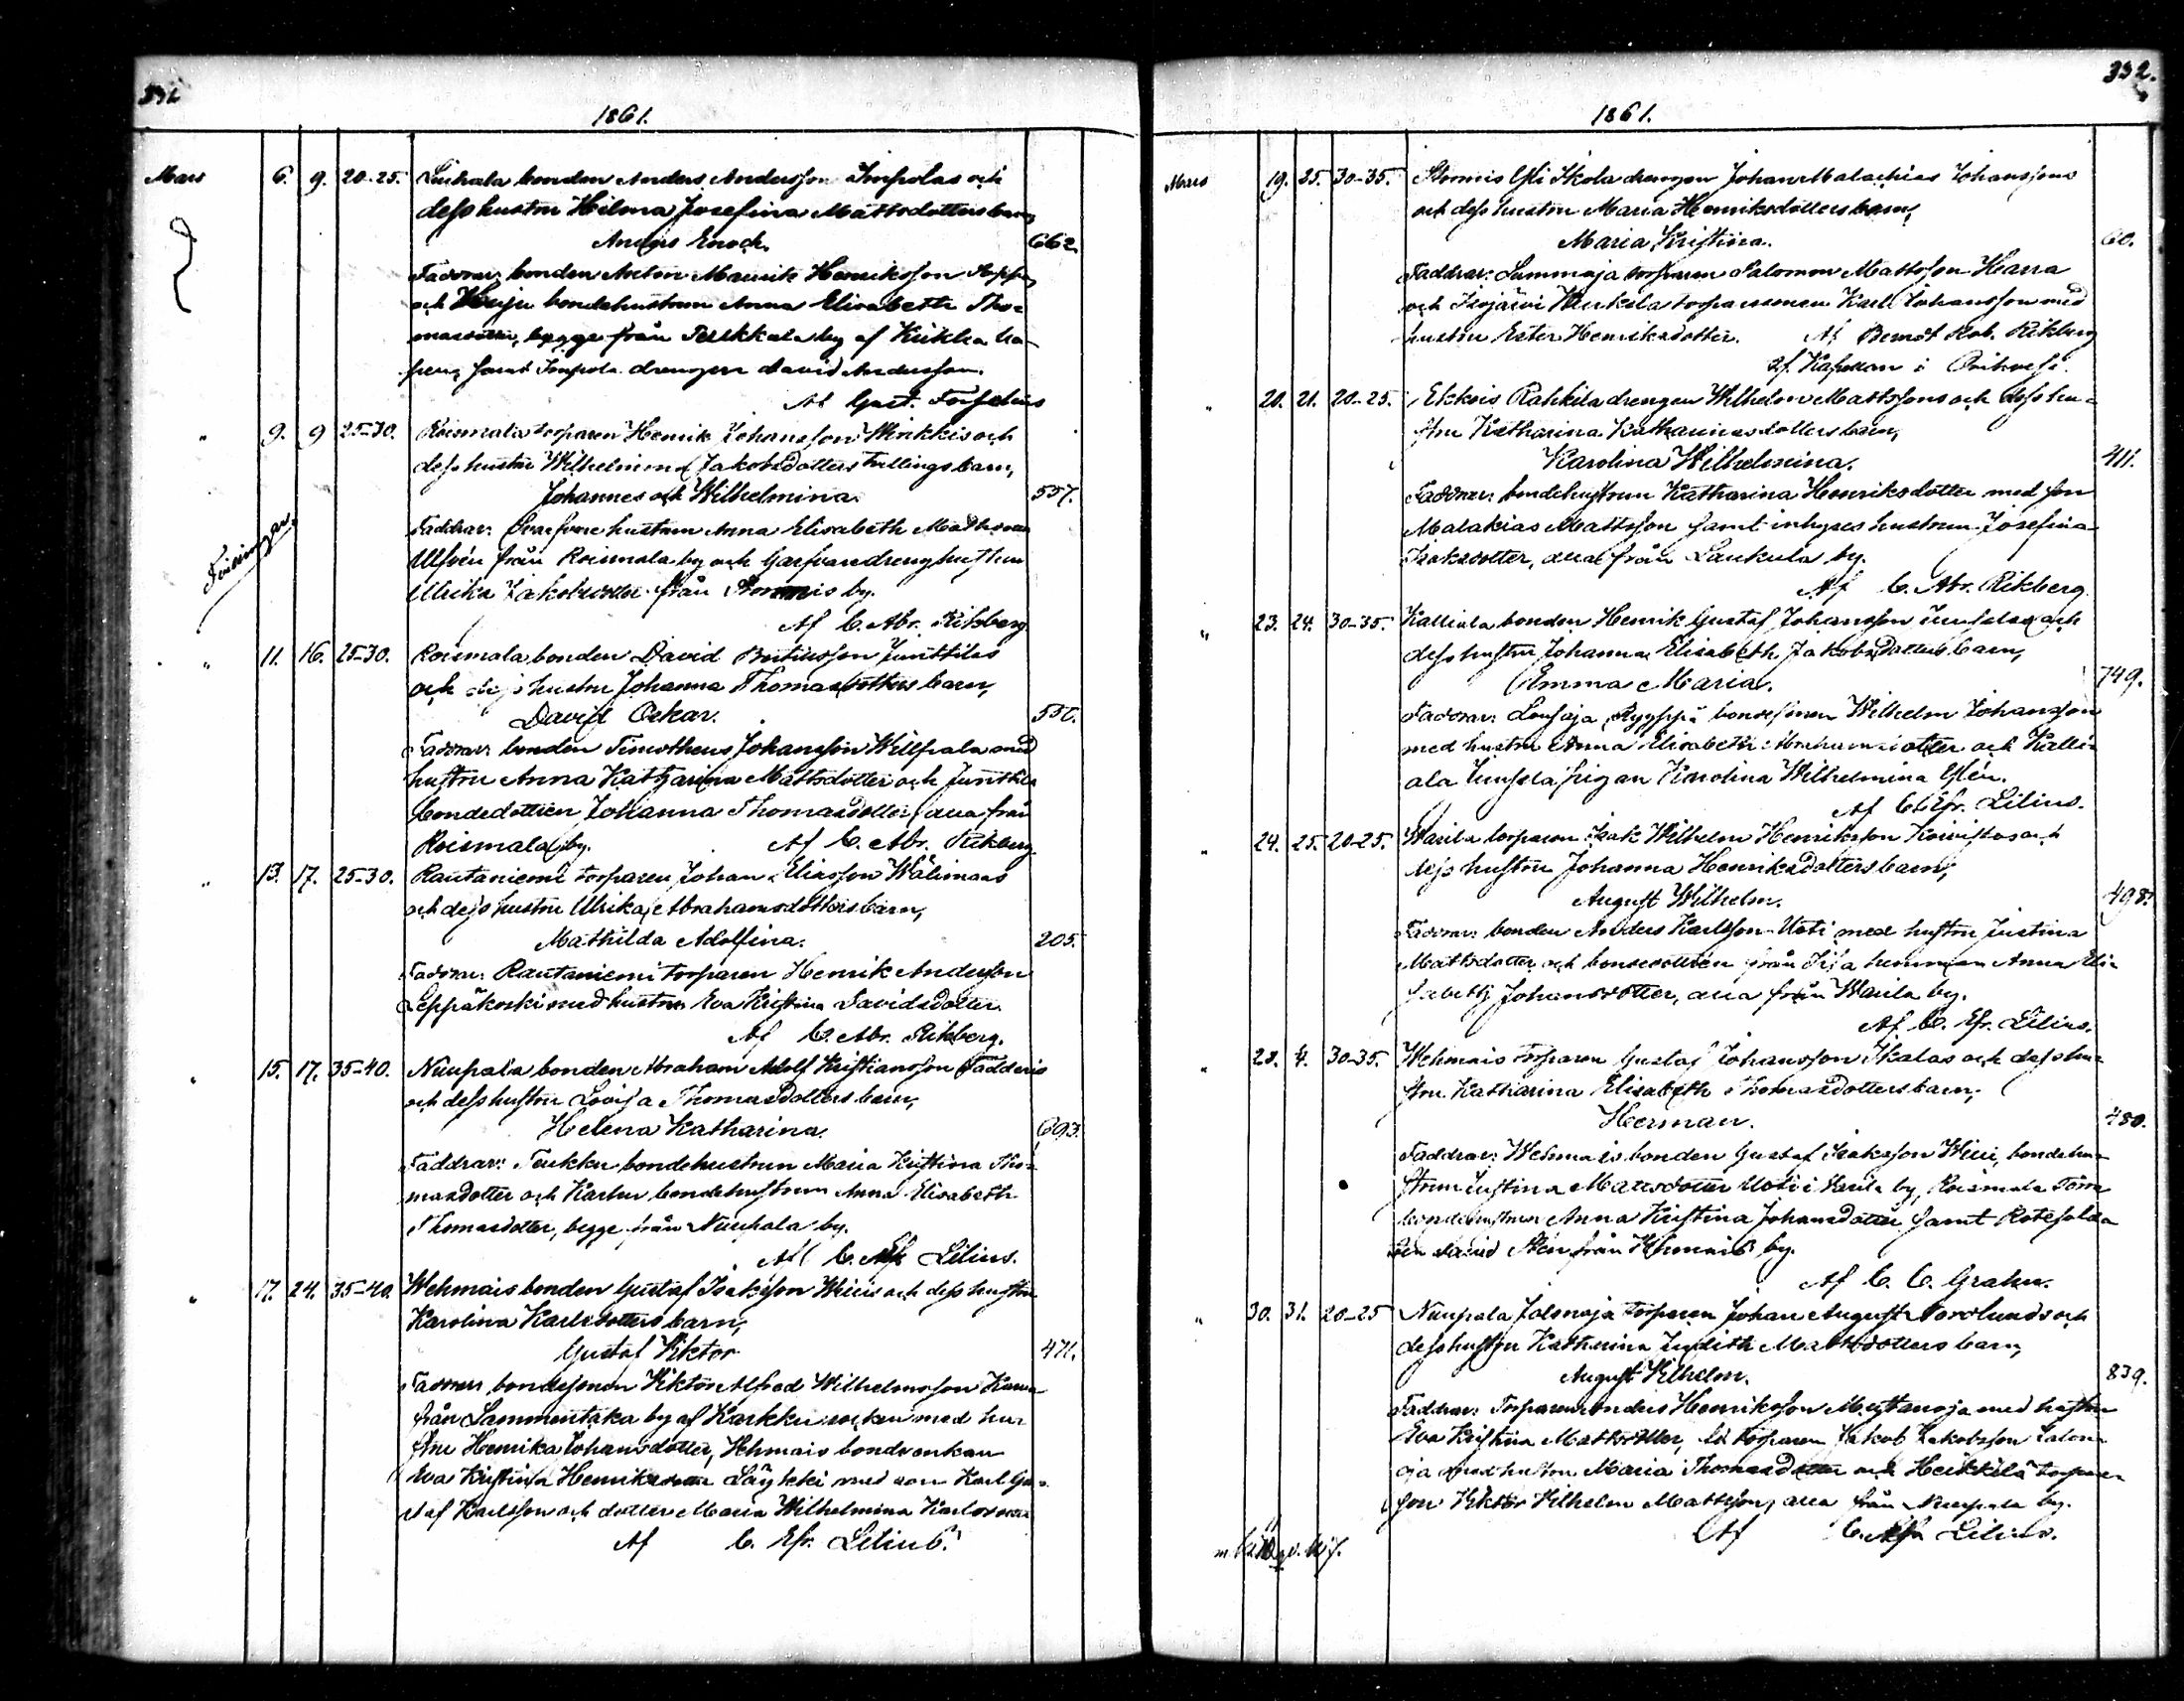 1861.
Mars 6. 9. 20-25. bonden Anders Andersson Impolas och
dess hustru Hilma Josefina Mattsdotters barn,
Anders Enoch. 662.
Faddrar: bonden Anton Maurits Henriksson
och bondehustrun Anna Elisabeth Tho-
masdotter, begge från by af
samt Impola drengen David Andersson.
Af Gust. Forselius
" 9. 9 25-30. Roismala torparen Henrik Johansson och
dess hustru Wilhelmina Jakobsdotters tvillingsbarn,
Johannes och Wilhelmina. 557.
Faddrar: hustrun Anna Elisabeth
Ulfvén från Roismala by och Garfvaredrenghustrun
Ulrika Jakobsdotter från Stormis by.
Tvillingar.
Af C. Abr. Rikberg
" 11. 16. 25-30. Roismala bonden David Junttilas
och dess hustru Johanna Thomasdotters barn,
David Oskar. 550.
Faddrar: bonden Timotheus Johansson Willpala med
hustru Anna Katharina Mattsdotter och Junttila
bondedottren Johanna Thomasdotter, alla från
Roismala by. Af C. Abr. Rikberg
" 13. 17. 25-30. Rautaniemi torparen Johan Eliasson Wälimaas
och dess hustru Ulrika Abrahamsdotters barn,
Mathilda Adolfina. 205.
Faddrar: Rautaniemi torparen Henrik Andersson
Leppäkoski med hustru Eva Kristina Davidsdotter.
Af C. Abr. Rikberg.
" 15. 17. 35-40. Nuupala bonden Abraham Adolf Kristiansson
och dess hustru Lovisa Thomasdotters barn,
Helena Katharina. 693.
Faddrar: bondehustrun Maria Kristina Tho-
masdotter och bondehustrun Anna Elisabeth
Thomasdotter, begge från Nuupala by.
Af C. Lilius.
" 17. 24. 35-40. Wehmais bonden Gustaf Isaksson och dess hustru
Karolina Karlsdotters barn,
Gustaf Viktor 471.
Faddrar: bondesonen Viktor Alfred Wilhelmsson
från Sammentaka by af Karkku socken med hu-
stru Henrika Johansdotter, Wehmais bondeenkan
Eva Kristina med son Karl Gu-
staf Karlsson och dotter Maria Wilhelmina Karlsdotter
Af C. Efr. Lilius.
332.
1861.
Mars 19. 25. 30-35. Stormis Yli Skola drengen Johan Malachias Johanssons
och dess hustru Maria Henriksdotters barn,
Maria Kristina. 60.
Faddrar: Lammaja torparen Salomon Mattsson
och Karl Johansson med
hustru Ester Henriksdotter. Af Berndt Rob. Rikberg
Kapellan i
" 20. 21. 20-25. Ekkois Rahkila drengen Wilhelm Mattssons och dess hu-
stru Katharina Katharinasdotters barn,
Karolina Wilhelmina. 411.
Faddrar: bondehustrun Katharina Henriksdotter med son
Malakias Mattsson samt inhyses hustrun Josefina
Isaksdotter, alla från Laukula by.
Af C. Abr. Rikberg.
" 23. 24. 30-35. Kalliala bonden Henrik Gustaf Johansson och
dess hustru Johanna Elisabeth Jakobsdotters barn,
Emma Maria. 749.
Faddrar: bondesonen Wilhelm Johansson
med hustru Anna Elisabeth Abrahamsdotter och Kalli-
ala pigan Karolina Wilhelmina
Af C. Efr. Lilius.
" 24. 25. 20-25. Warila torparen Isak Wilhelm Henriksson Koivistos och
dess hustru Johanna Henriksdotters barn,
August Wilhelm. 498.
Faddrar: bonden Anders Karlsson Uoti med hustru Justina
Mattsdotter och bondedottren från Anna Eli-
sabeth Johansdotter, alla från Warila by.
Af C. Efr. Lilius.
" 28. 4. 30-35. Wehmais torparen Gustaf Johansson och dess hu-
stru Katharina Elisabeth Thomasdotters barn,
Herman. 480.
Faddrar: Wehmais bonden Gustaf Isaksson bondehu-
strun Justina Mattsdotter Uoti i Warila by, Roismala
bondehustrun Anna Kristina Johansdotter samt
David från Wehmais by.
Af C. C. Grahn.
" 30. 31. 20-25 Nuupala torparen Johan August Nordlunds och
dess hustru Katharina Judith Mattsdotters barn,
August Vilhelm. 839.
Faddrar: Torparen Anders Henriksson Mustanoja med hustru
Eva Kristina Mattsdotter, torparen Jakob Jakobsson
med hustru Maria Thomasdotter och Heikkilä torpare-
son Viktor Vilhelm Mattsson, alla från Nuupala by.
Af C. Lilius.